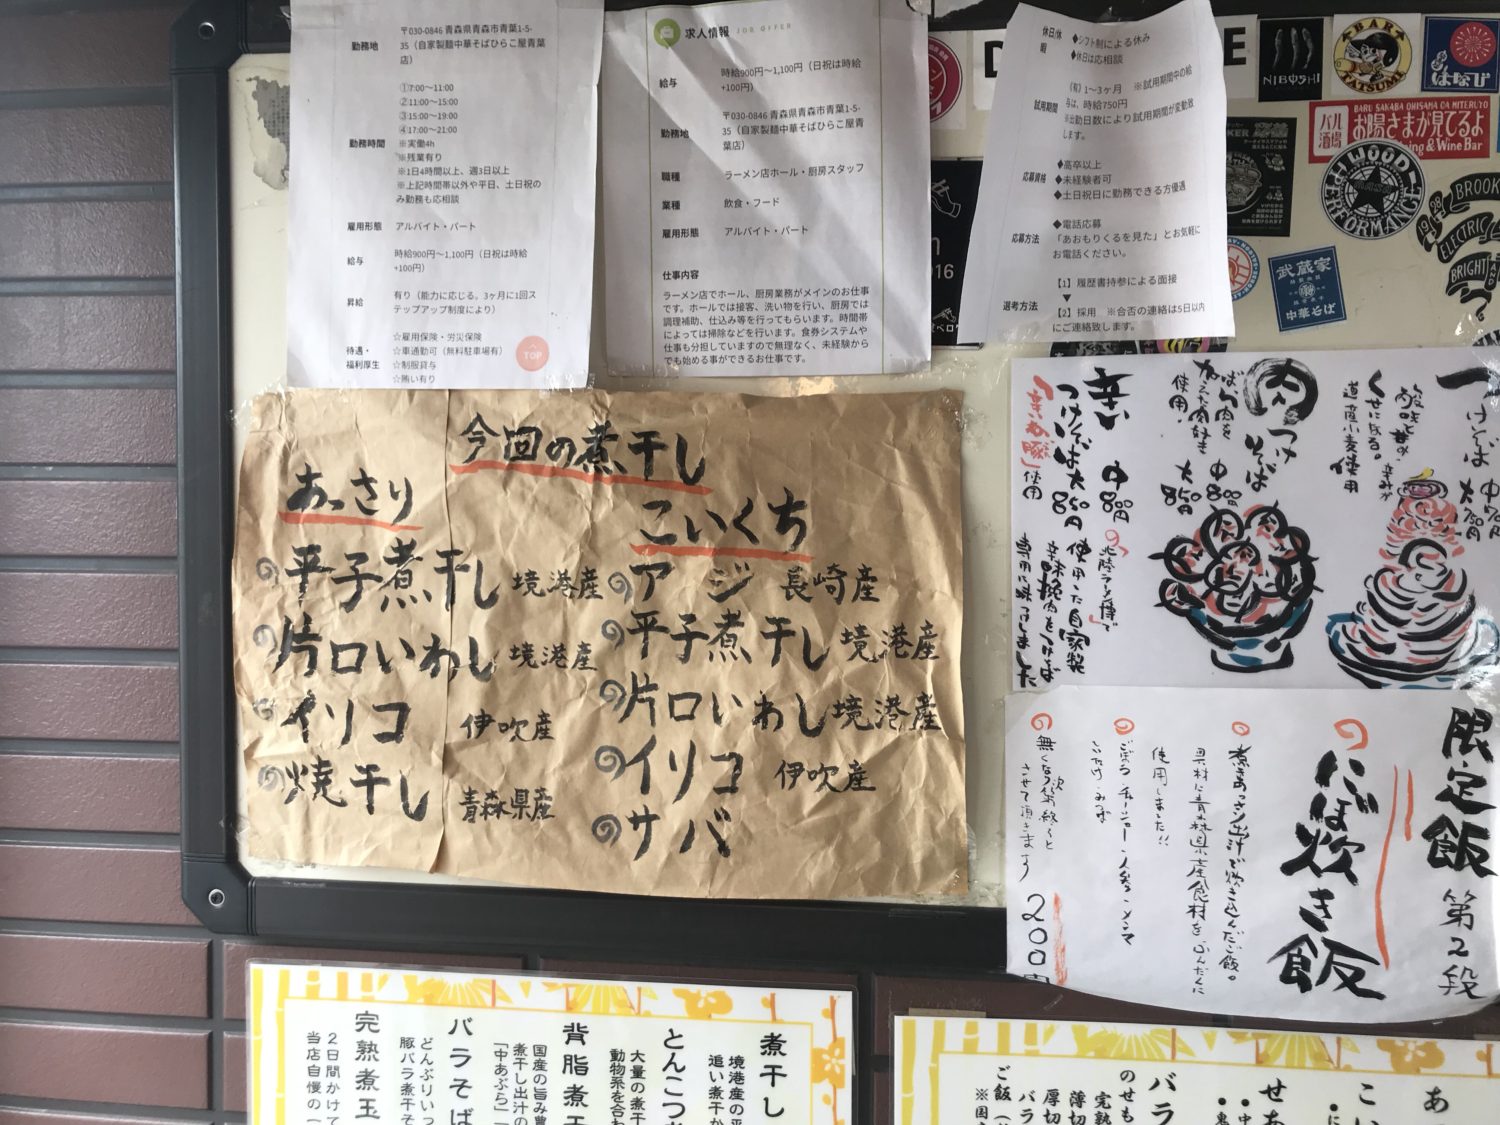 勤務地
〒030-0846 青森県青森市青葉1-5-
35（自家製麺中華そばひらこ屋青葉
店）
勤務時間
①7:00〜11:00
②11:00〜15:00
③15:00〜19:00
④17:00〜21:00
※実働4h
※残業有り
※1日4時間以上、週3日以上
※上記時間帯以外や平日、土日祝の
み勤務も応相談
雇用形態
アルバイト・パート
給与
時給900円〜1,100円（日祝は時給
+100円）
昇給
有り（能力に応じる。3ヶ月に1回ス
テップアップ制度により）
待遇・
福利厚生
☆雇用保険・労災保険
☆車通勤可（無料駐車場有）
☆制服貸与
☆賄い有り
TOP
求人情報 JOB OFFER
給与
時給900円〜1,100円（日祝は時給
+100円）
勤務地
〒030-0846 青森県青森市青葉1-5-
35（自家製麺中華そばひらこ屋青
葉店）
職種
ラーメン店ホール・厨房スタッフ
業種
飲食・フード
雇用形態
アルバイト・パート
仕事内容
ラーメン店でホール、厨房業務がメインのお仕事
です。ホールでは接客、洗い物を行い、厨房では
調理補助、仕込み等を行ってもらいます。時間帯
によっては掃除などを行います。食券システムや
仕事も分担していますので無理なく、未経験から
でも始める事ができるお仕事です。
休日/休
暇
◆シフト制による休み
◆休日は応相談
試用期間
（有）1〜3ヶ月 ※試用期間中の給
与は、時給750円
※出勤日数により試用期間が変動致
します。
応募資格
◆高卒以上
◆未経験者可
◆土日祝日に勤務できる方優遇
応募方法
◆電話応募
「あおもりくるを見た」とお気軽に
お電話ください。
選考方法
【1】履歴書持参による面接
▼
【2】採用 ※合否の連絡は5日以内
にご連絡致します。
NIBOSHI
BAR
TATSUMI
はなび
BARU SAKABA OHISAMA GA MITERUYO
バル
酒場
お陽さまが見てるよ
ing & Wine Bar
WOOD
PERFORMANCE
BROOK
ELECTRIC
BRIGHT
AND
武蔵家
中華そば
今回の煮干し
あっさり
平子煮干し 境港産
片口いわし 境港産
イリコ 伊吹産
焼干し 青森県産
こいくち
アジ 長崎産
平子煮干し 境港産
片口いわし 境港産
イリコ 伊吹産
サバ
つけそば 中700円
大750円
酸味と甘み、辛みが
くせになる。
道産小麦使用
肉つけそば
ばら肉を
使用。
中800円
大850円
辛いつけそば
中800円
大850円
使用
使用した自家製
辛味挽肉をつけそば
専用に味つけました
限定飯 第2段
にぼ炊き飯
煮干あっさり出汁で炊き込んだご飯。
具材に青森県産食材をふんだんに
使用しました!!
ごぼう チャーシュー 人参 メンマ
しいたけ みつば
無くなり次第終了と
させて頂きます
200円
煮干し
境港産の平
追い煮干か
とんこつ
大量の煮干
動物系を合わ
背脂煮
国産の旨み豊
煮干し出汁の
「中あぶら」
バラそば
どんぶりいっ
豚バラ煮干そ
完熟煮玉
2日間かけて
当店自慢の
あ
こい
せあ
バラ
のせも
完熟
薄切
厚切
バラ
ご飯